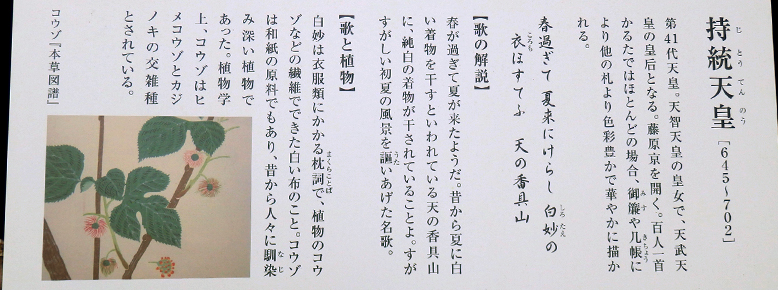 持統天皇[645~702]
じとうてんのう
第41代天皇。天智天皇の皇女で、天武天
皇の皇后となる。藤原京を開く。百人一首
かるたではほとんどの場合、御簾や几帳に
みす きちょう
より他の札より色彩豊かで華やかに描か
れる。
春過ぎて 夏来にけらし 白妙の
しろたえ
衣ほすてふ 天の香具山
ころも
【歌の解説】
春が過ぎて夏が来たようだ。昔から夏に白
い着物を干すといわれている天の香具山
に、純白の着物が干されていることよ。すが
すがしい初夏の風景を謳いあげた名歌。
うた
【歌と植物】
白妙は衣服類にかかる枕詞で、植物のコウ
まくらことば
ゾなどの繊維でできた白い布のこと。コウゾ
は和紙の原料でもあり、昔から人々に馴染
なじ
み深い植物で
あった。植物学
上、コウゾはヒ
メコウゾとカジ
ノキの交雑種
とされている。
コウゾ『本草図譜』